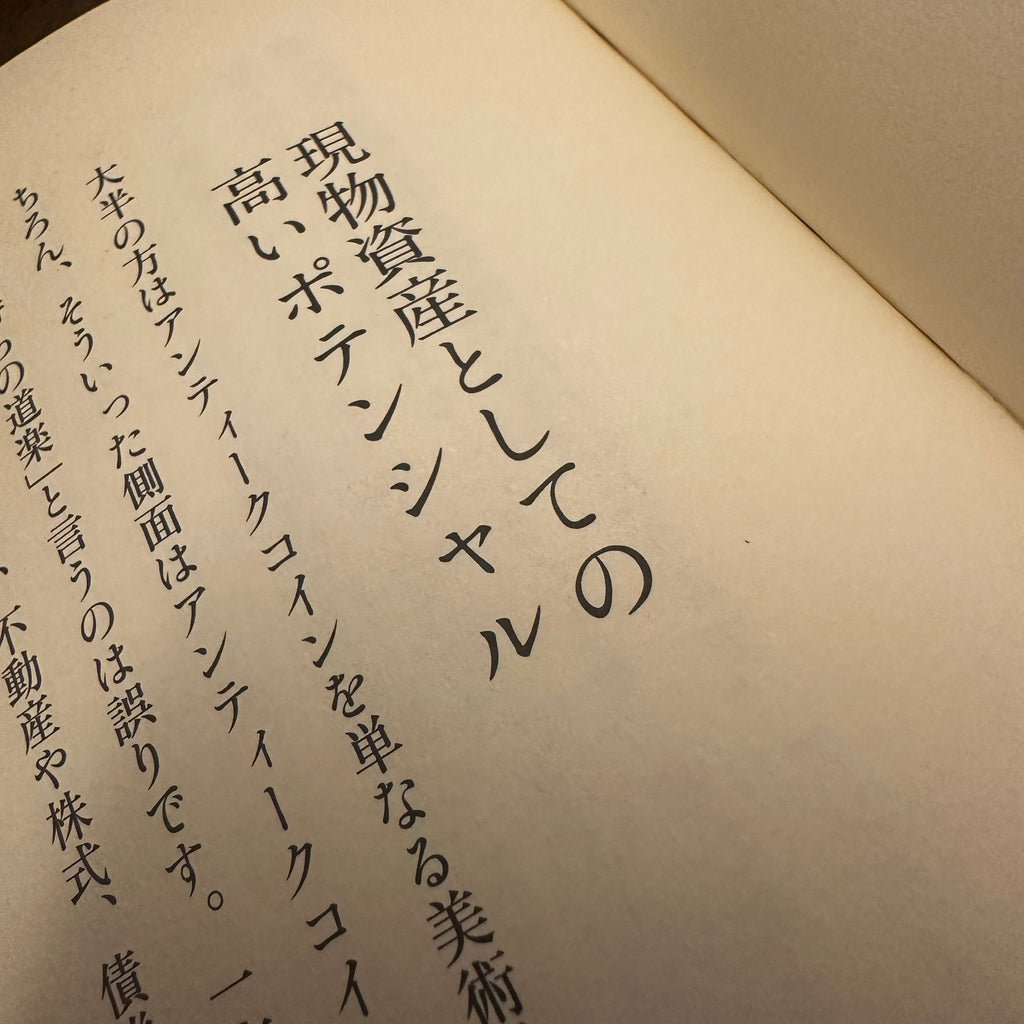 現物資産としての
高いポテンシャル
大半の方はアンティークコインを単なる美術
ちろん、そういった側面はアンティークコイ
ちの道楽」と言うのは誤りです。一
、不動産や株式、債